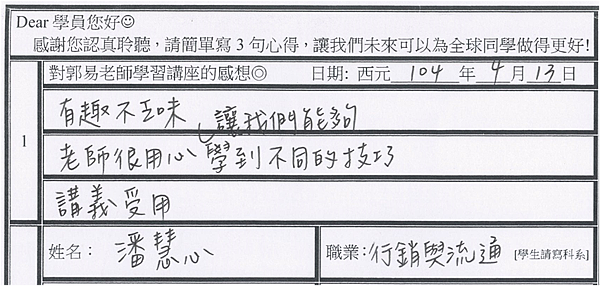 Dear 學員您好☺
感謝您認真聆聽，請簡單寫3句心得，讓我們未來可以為全球同學做得更好!
對郭易老師學習講座的感想◎ 日期: 西元 104 年 4 月 13 日
1
有趣不乏味
讓我們能夠
老師很用心 學到不同的技巧
講義受用
姓名： 潘慧心 職業: 行銷與流通 [學生請寫科系]